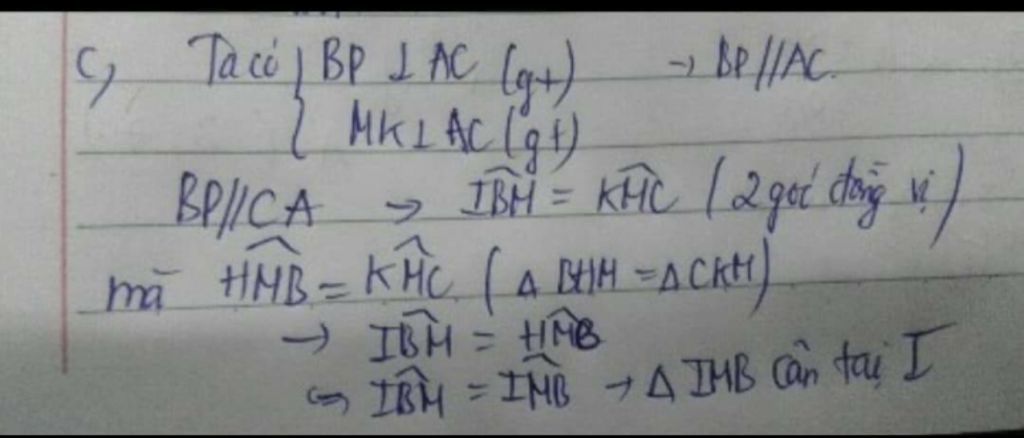 c, Ta có { BP ⊥ AC (gt) → BP//AC.
MK ⊥ AC (gt)
BP//CA → IB̂M = KM̂C (2 góc đồng vị)
mà HM̂B = KM̂C (Δ BHM = Δ CKM)
→ IB̂M = HM̂B
⇔ IB̂M = IM̂B → Δ IMB cân tại I